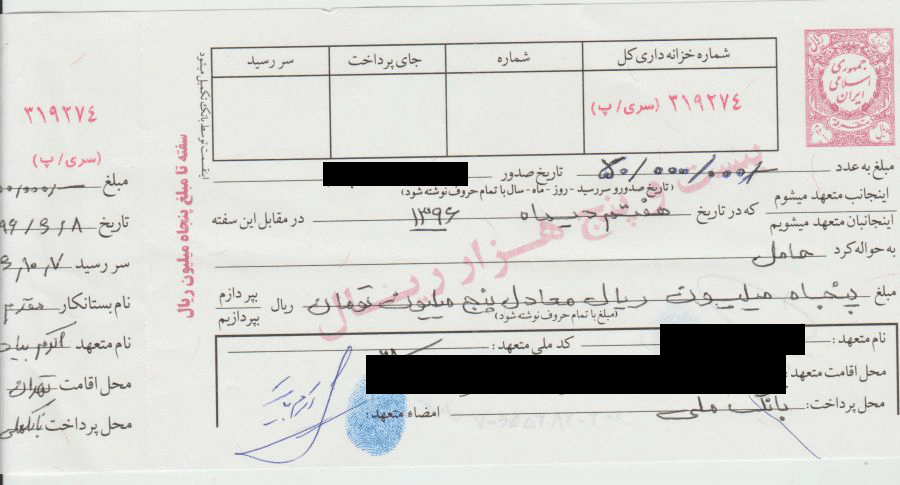 جمهوری
اسلامی
ایران
شماره خزانه داری کل
شماره
جای پرداخت
سر رسید
۳۱۹۲۷٤ (سری/پ)
اینقسمت توسط بانک تکمیل میشود
سفته تا مبلغ پنجاه میلیون ریال
بیست و پنج هزار ریال
مبلغ به عدد ۵۰/۰۰۰/۰۰۰/ تاریخ صدور
(تاریخ صدور و سررسید - روز - ماه - سال با تمام حروف نوشته شود)
اینجانب متعهد میشوم
اینجانبان متعهد میشویم
که در تاریخ هفتم دیماه ۱۳۹۶ در مقابل این سفته
به حواله کرد حامل
مبلغ پنجاه میلیون ریال معادل پنج میلیون تومان ریال
بپردازم
بپردازیم
(مبلغ با تمام حروف نوشته شود)
نام متعهد: کد ملی متعهد:
محل اقامت متعهد:
محل پرداخت: بانک ملی امضاء متعهد:
۳۱۹۲۷٤
(سری/پ)
مبلغ
تاریخ ۹۶/۶/۸
سر رسید ۱۰/۷
نام بستانکار
نام متعهد اکرم
محل اقامت تهران
محل پرداخت بانک ملی